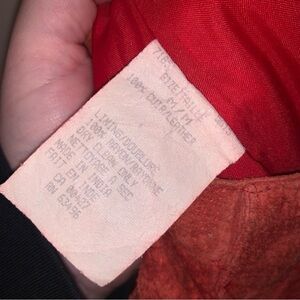 SIZE/TAILLE
M/M
100% CUIR/LEATHER
LINING/DOUBLURE
100% RAYON/RAYONNE
DRY CLEAN ONLY
NETTOYAGE SEC
MADE IN INDIA
FAIT EN INDE
CA 00427
RN 63496